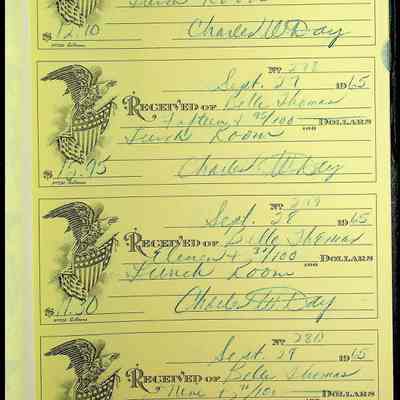 Lunch Room
$12.10 Charles W Day
No 278
Sept. 27 1965
Received of Belle Thomas
Fifteen & 95/100 Dollars
Lunch Room
$15.95 Charles W Day
No 279
Sept. 28 1965
Received of Belle Thomas
Eleven & 30/100 Dollars
Lunch Room
$11.30 Charles W Day
No 280
Sept. 29 1965
Received of Belle Thomas
Nine & /100 Dollars